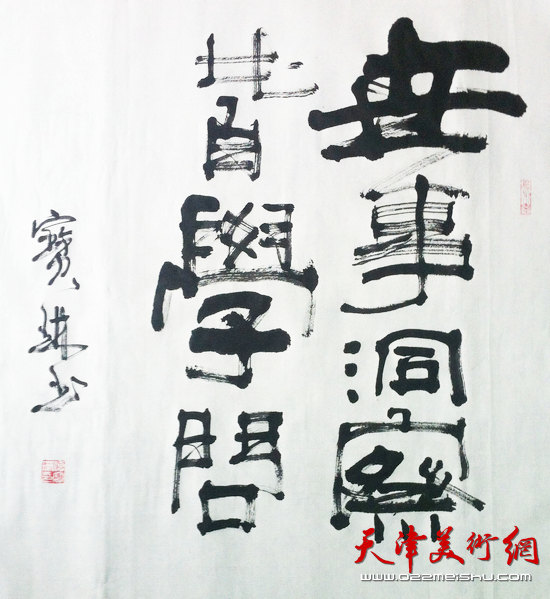 世事洞察
皆學問
寶 书
天津美術網
www.022meishu.com